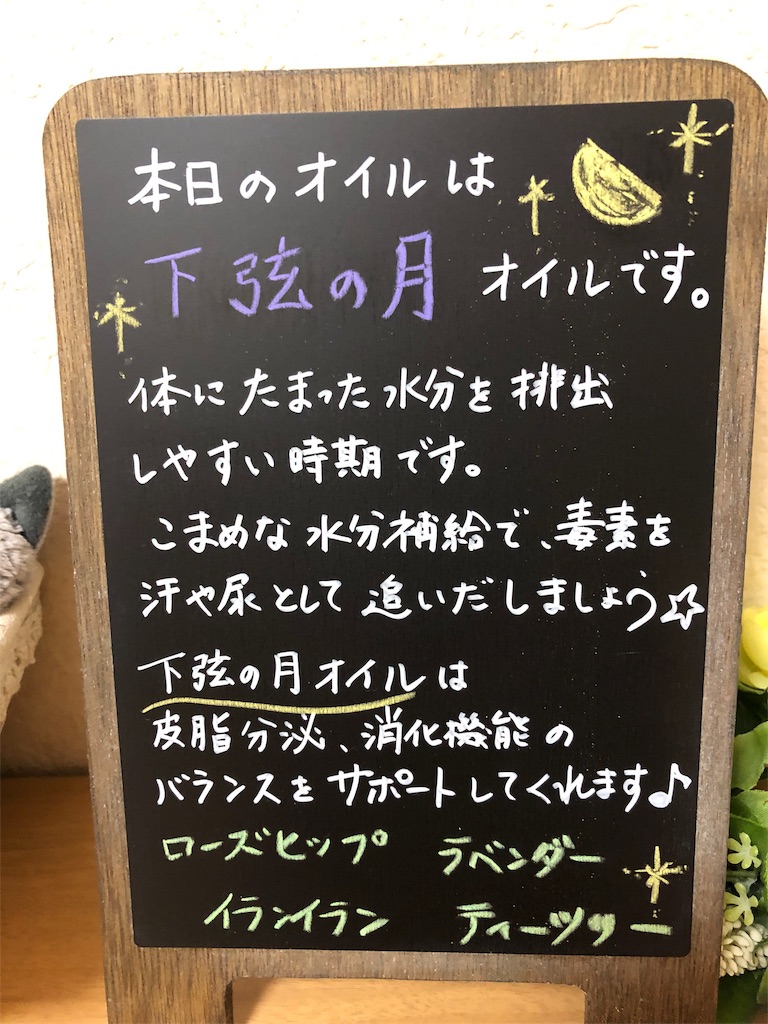 本日のオイルは
下弦の月 オイルです。
体にたまった水分を排出
しやすい時期です。
こまめな水分補給で、毒素を
汗や尿として追いだしましょう☆
下弦の月オイルは
皮脂分泌、消化機能の
バランスをサポートしてくれます♪
ローズヒップ ラベンダー
イランイラン ティーツリー